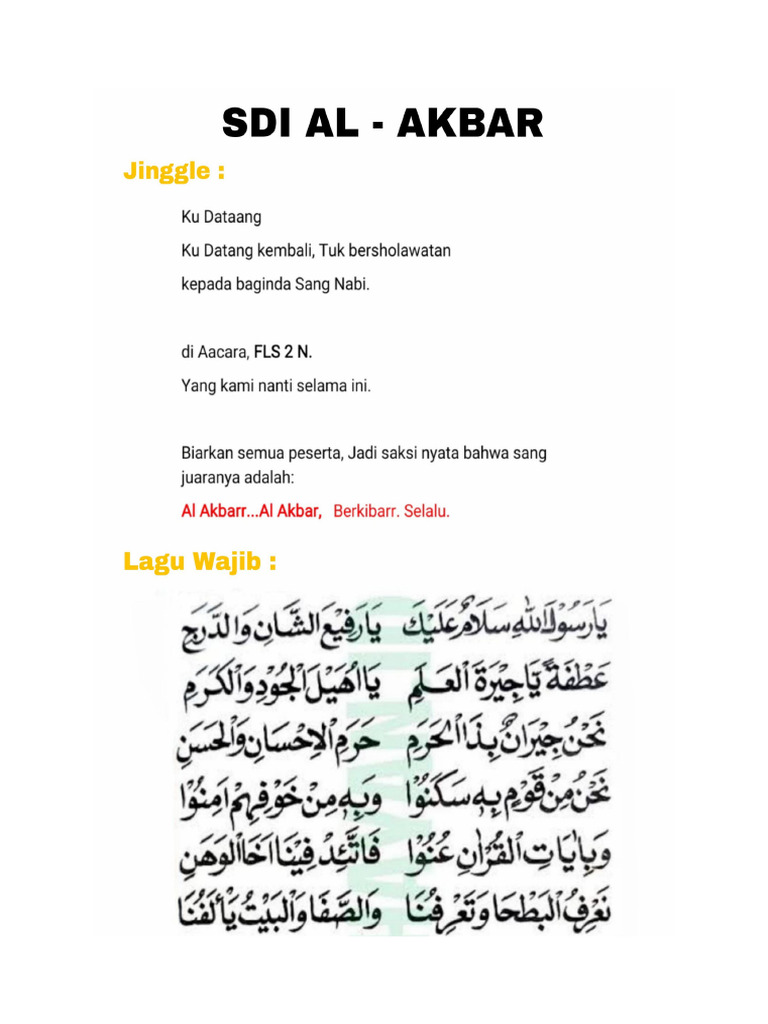 SDI AL - AKBAR
Jinggle :
Ku Dataang
Ku Datang kembali, Tuk bersholawatan
kepada baginda Sang Nabi.
di Aacara, FLS 2 N.
Yang kami nanti selama ini.
Biarkan semua peserta, Jadi saksi nyata bahwa sang
juaranya adalah:
Al Akbarr...Al Akbar, Berkibarr. Selalu.
Lagu Wajib :
يَارَسُوْلَ اللهِ سَلَامٌ عَلَيْكَ يَارَفِيْعَ الشَّانِ وَالدَّرَجِ
عَطْفَةً يَّاجِيْرَةَ الْعَلَمِ يَااُهَيْلَ الْجُوْدِ وَالْكَرَمِ
نَحْنُ جِيْرَانٌ بِذَا الْحَرَمِ حَرَمِ الْاِحْسَانِ وَالْحَسَنِ
نَحْنُ مِنْ قَوْمٍ بِهٖ سَكَنُوْا وَبِهٖ مِنْ خَوْفِهِمْ اٰمِنُوْا
وَبِاٰيَاتِ الْقُرْاٰنِ عُنُوْا فَاتَّئِدْ فِيْنَا اَخَاالْوَهَنِ
نَعْرِفُ الْبَطْحَا وَتَعْرِفُنَا وَالصَّفَا وَالْبَيْتُ يَأْلَفُنَا